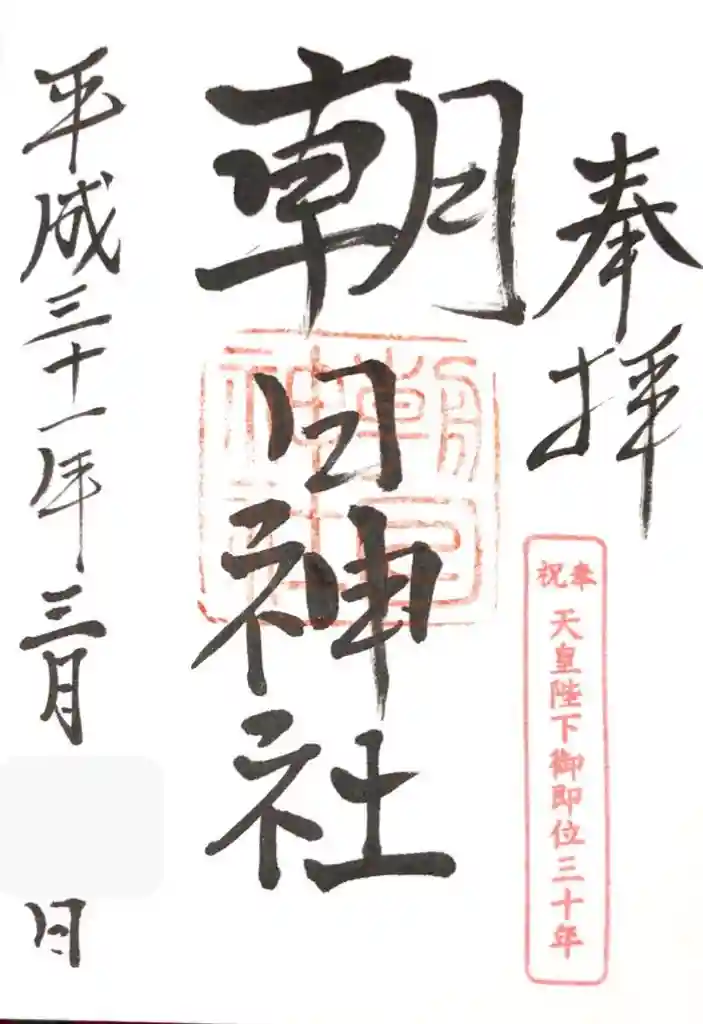 奉拝
奉祝
天皇陛下御即位三十年
朝日神社
朝日神社
平成三十一年三月
日